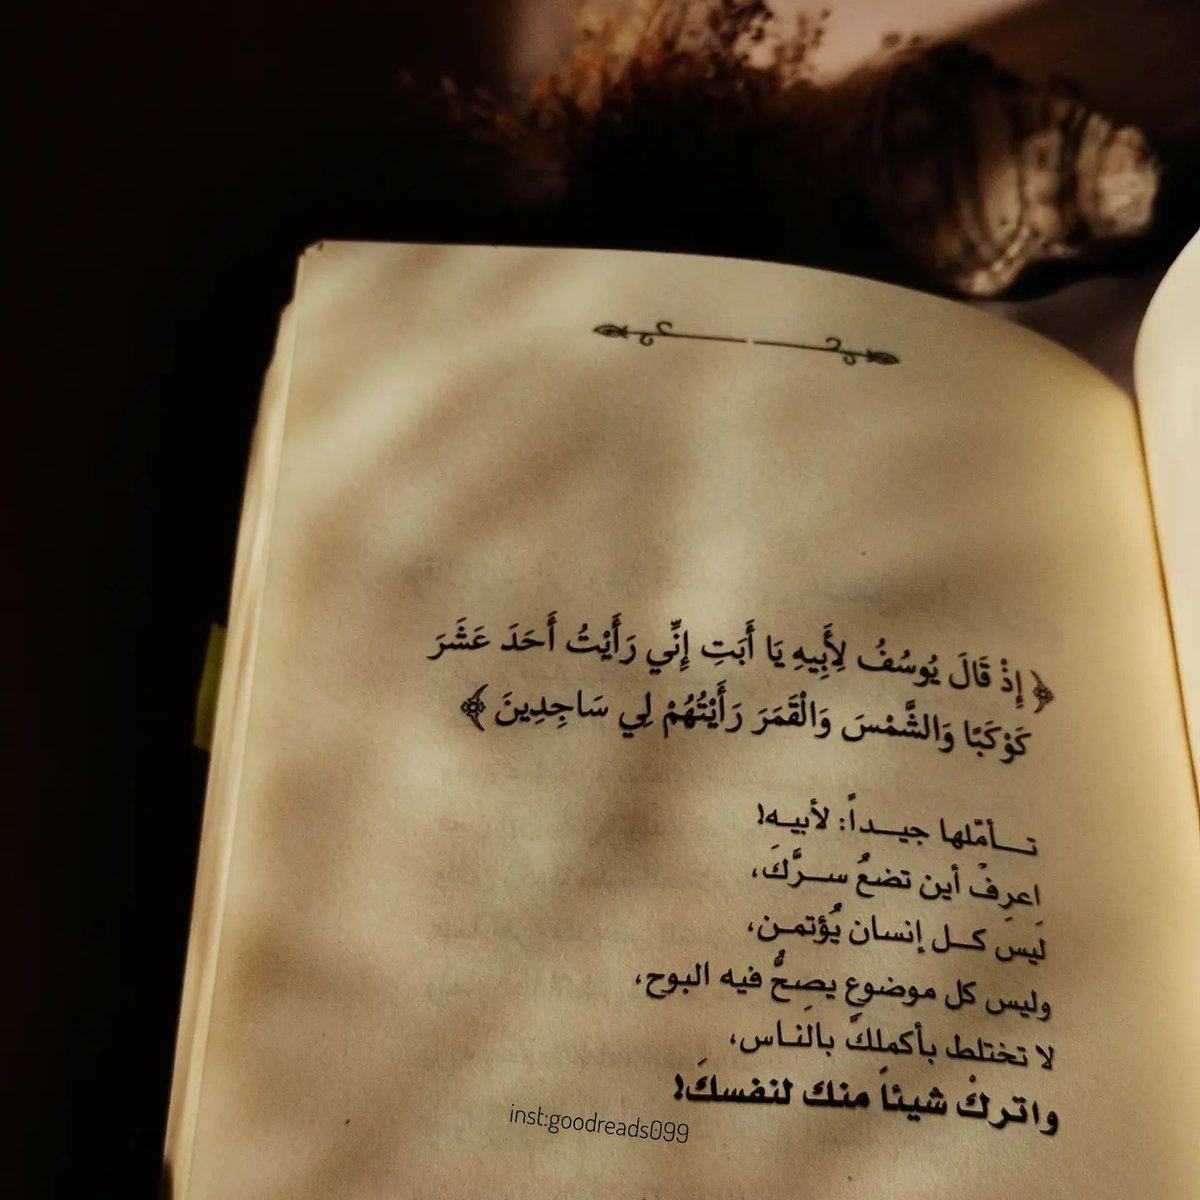 ﴿ إِذْ قَالَ يُوسُفُ لِأَبِيهِ يَا أَبَتِ إِنِّي رَأَيْتُ أَحَدَ عَشَرَ
كَوْكَبًا وَالشَّمْسَ وَالْقَمَرَ رَأَيْتُهُمْ لِي سَاجِدِينَ ﴾
تـــأمّلها جيــداً: لأبيــه!
اِعرِفْ أين تضعُ ســـرَّكَ،
ليس كــل إنسان يُؤتمـن،
وليس كل موضوعٍ يصِحُّ فيه البوح،
لا تختلط بأكملِكَ بالنـاس،
واتركْ شيئاً منك لنفسكَ!
inst:goodreads099